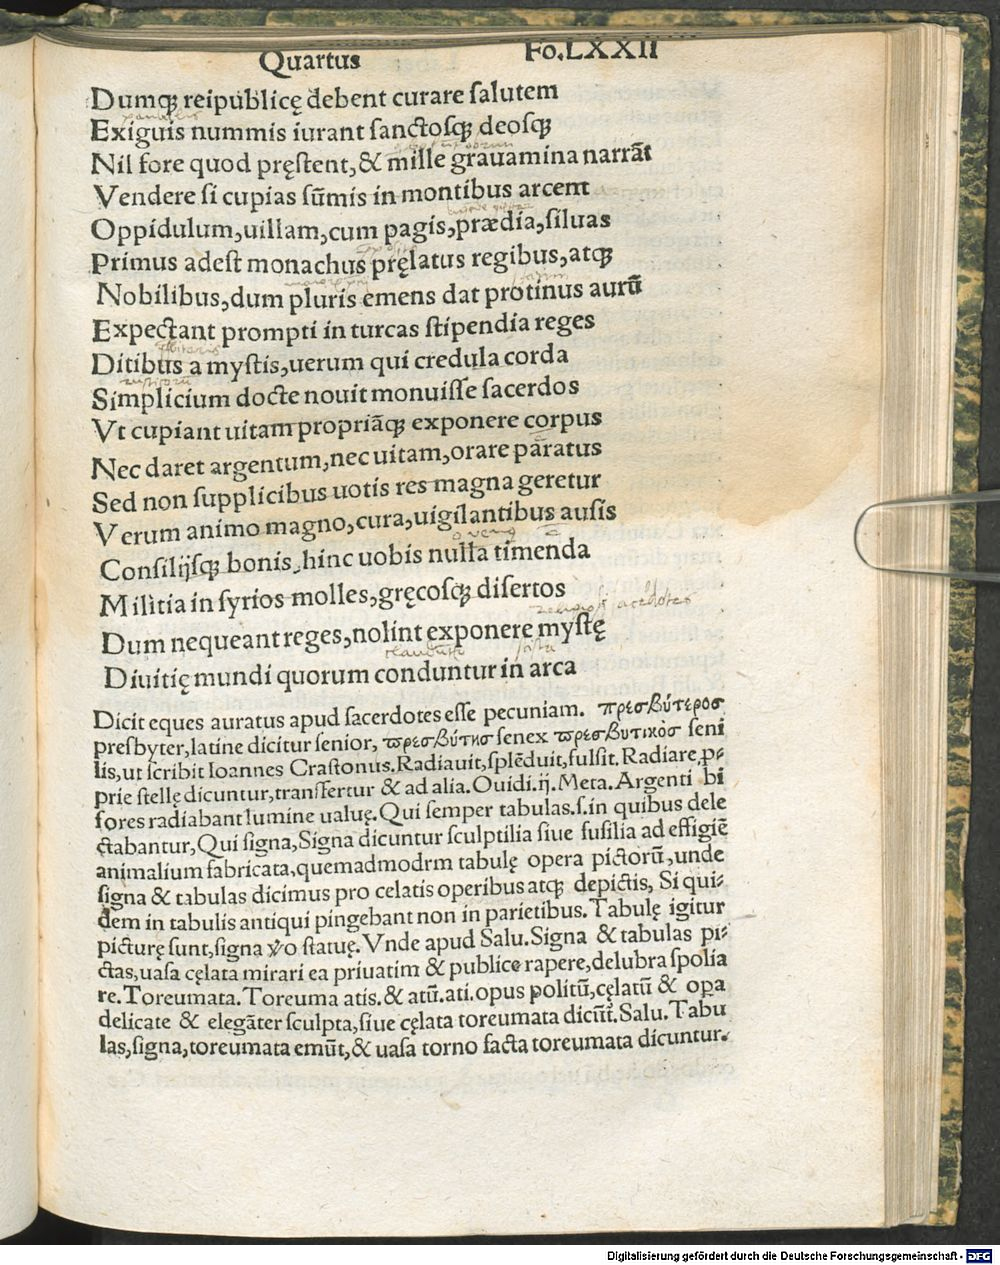 Quartus Fo.LXXII
Dumqꝫ reipublicę debent curare ſalutem
Exiguis nummis iurant ſanctoſqꝫ deoſqꝫ
Nil fore quod pręſtent,& mille grauamina narrãt
Vendere ſi cupias ſũmis in montibus arcent
Oppidulum,uillam,cum pagis,prædia,ſiluas
Primus adeſt monachus pręlatus regibus,atqꝫ
Nobilibus,dum pluris emens dat protinus aurũ
Expectant prompti in turcas ſtipendia reges
Ditibus a myſtis,uerum qui credula corda
Simplicium docte nouit monuiſſe ſacerdos
Vt cupiant uitam propriãqꝫ exponere corpus
Nec daret argentum,nec uitam,orare paratus
Sed non ſupplicibus uotis res magna geretur
Verum animo magno,cura,uigilantibus auſis
Conſilijſqꝫ bonis,hinc uobis nulla timenda
Militia in ſyrios molles,gręcoſqꝫ diſertos
Dum nequeant reges,nolint exponere myſtę
Diuitię mundi quorum conduntur in arca
Dicit eques auratus apud ſacerdotes eſſe pecuniam. πρεσβύτεροσ
presbyter,latine dicitur ſenior, πρεσβύτησ ſenex πρεσβυτικὸσ ſeni
lis,ut ſcribit Ioannes Craſtonus.Radiauit,ſplẽduit,fulſit.Radiare ꝓ⸗
prie ſtellę dicuntur,tranſfertur & ad alia.Ouidi.ij.Meta.Argenti bi
fores radiabant lumine ualuę.Qui ſemper tabulas.ſ.in quibus dele
ctabantur,Qui ſigna,Signa dicuntur ſculptilia ſiue fuſilia ad effigiẽ
animalium fabricata,quemadmodrm tabulę opera pictorũ,unde
ſigna & tabulas dicimus pro celatis operibus atqꝫ depictis, Si qui⸗
dem in tabulis antiqui pingebant non in parietibus.Tabulę igitur
picturę ſunt,ſigna ꝟo ſtatuę.Vnde apud Salu.Signa & tabulas pi⸗
ctas,uaſa cęlata mirari ea priuatim & publice rapere,delubra ſpolia
re.Toreumata.Toreuma atis.& atũ.ati.opus politũ,cęlatũ & oꝑa
delicate & elegãter ſculpta,ſiue cęlata toreumata dicũt.Salu.Tabu
las,ſigna,toreumata emũt,& uaſa torno facta toreumata dicuntur.
Digitalisierung gefördert durch die Deutsche Forschungsgemeinschaft - DFG